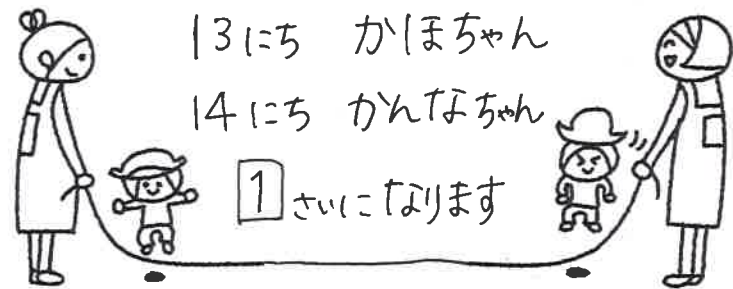 13にち かほちゃん
14にち かんなちゃん
1さいになります